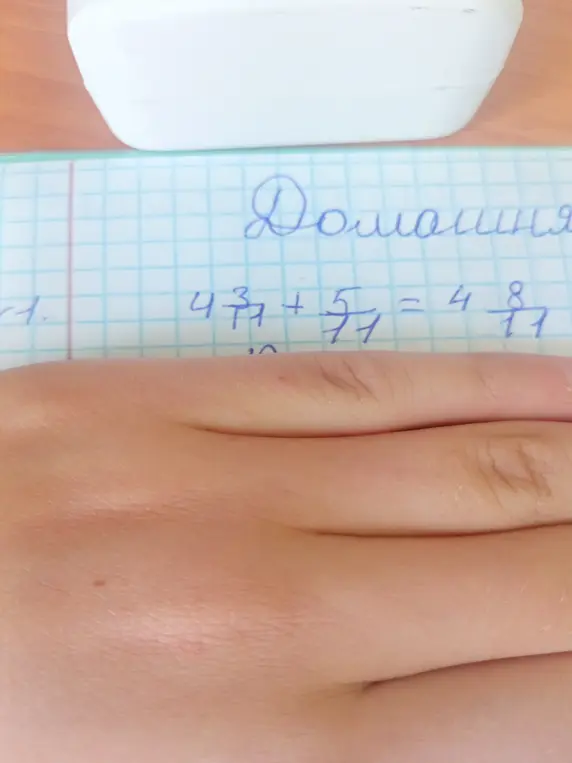 Домашня
1. 4 3/11 + 5/11 = 4 8/11